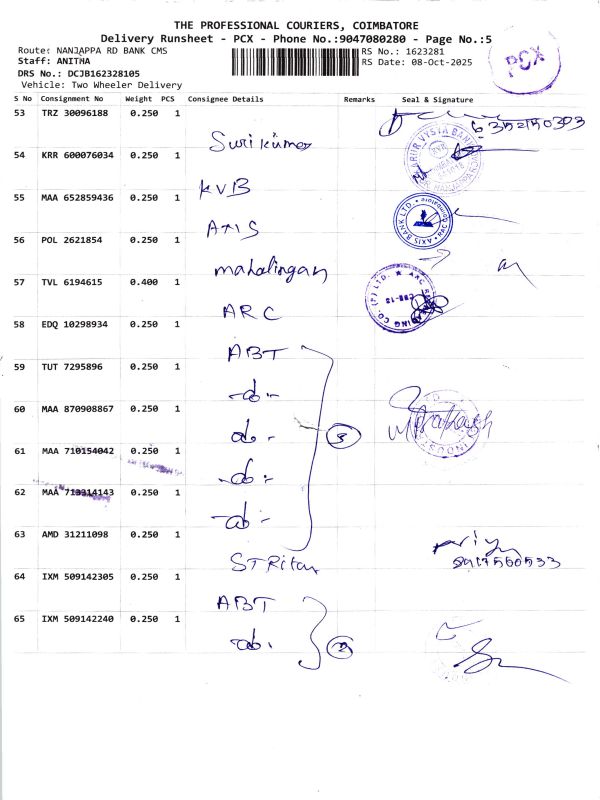 THE PROFESSIONAL COURIERS, COIMBATORE
Delivery Runsheet - PCX - Phone No.:9047080280 - Page No.:5
Route: NANJAPPA RD BANK CMS
RS No.: 1623281
Staff: ANITHA
RS Date: 08-Oct-2025
DRS No.: DCJB162328105
Vehicle: Two Wheeler Delivery
PCX
S No Consignment No Weight PCS Consignee Details Remarks Seal & Signature
53 TRZ 30096188 0.250 1
Suri kumar
54 KRR 600076034 0.250 1
KVB
55 MAA 652859436 0.250 1
Axis
AXIS BANK LTD.
56 POL 2621854 0.250 1
mahalingam
57 TVL 6194615 0.400 1
ARC
58 EDQ 10298934 0.250 1
ABT
59 TUT 7295896 0.250 1
-do-
60 MAA 870908867 0.250 1
do-
3
61 MAA 710154042 0.250 1
-do-
62 MAA 713314143 0.250 1
-do-
63 AMD 31211098 0.250 1
priya
64 IXM 509142305 0.250 1
ABT
65 IXM 509142240 0.250 1
do.
2